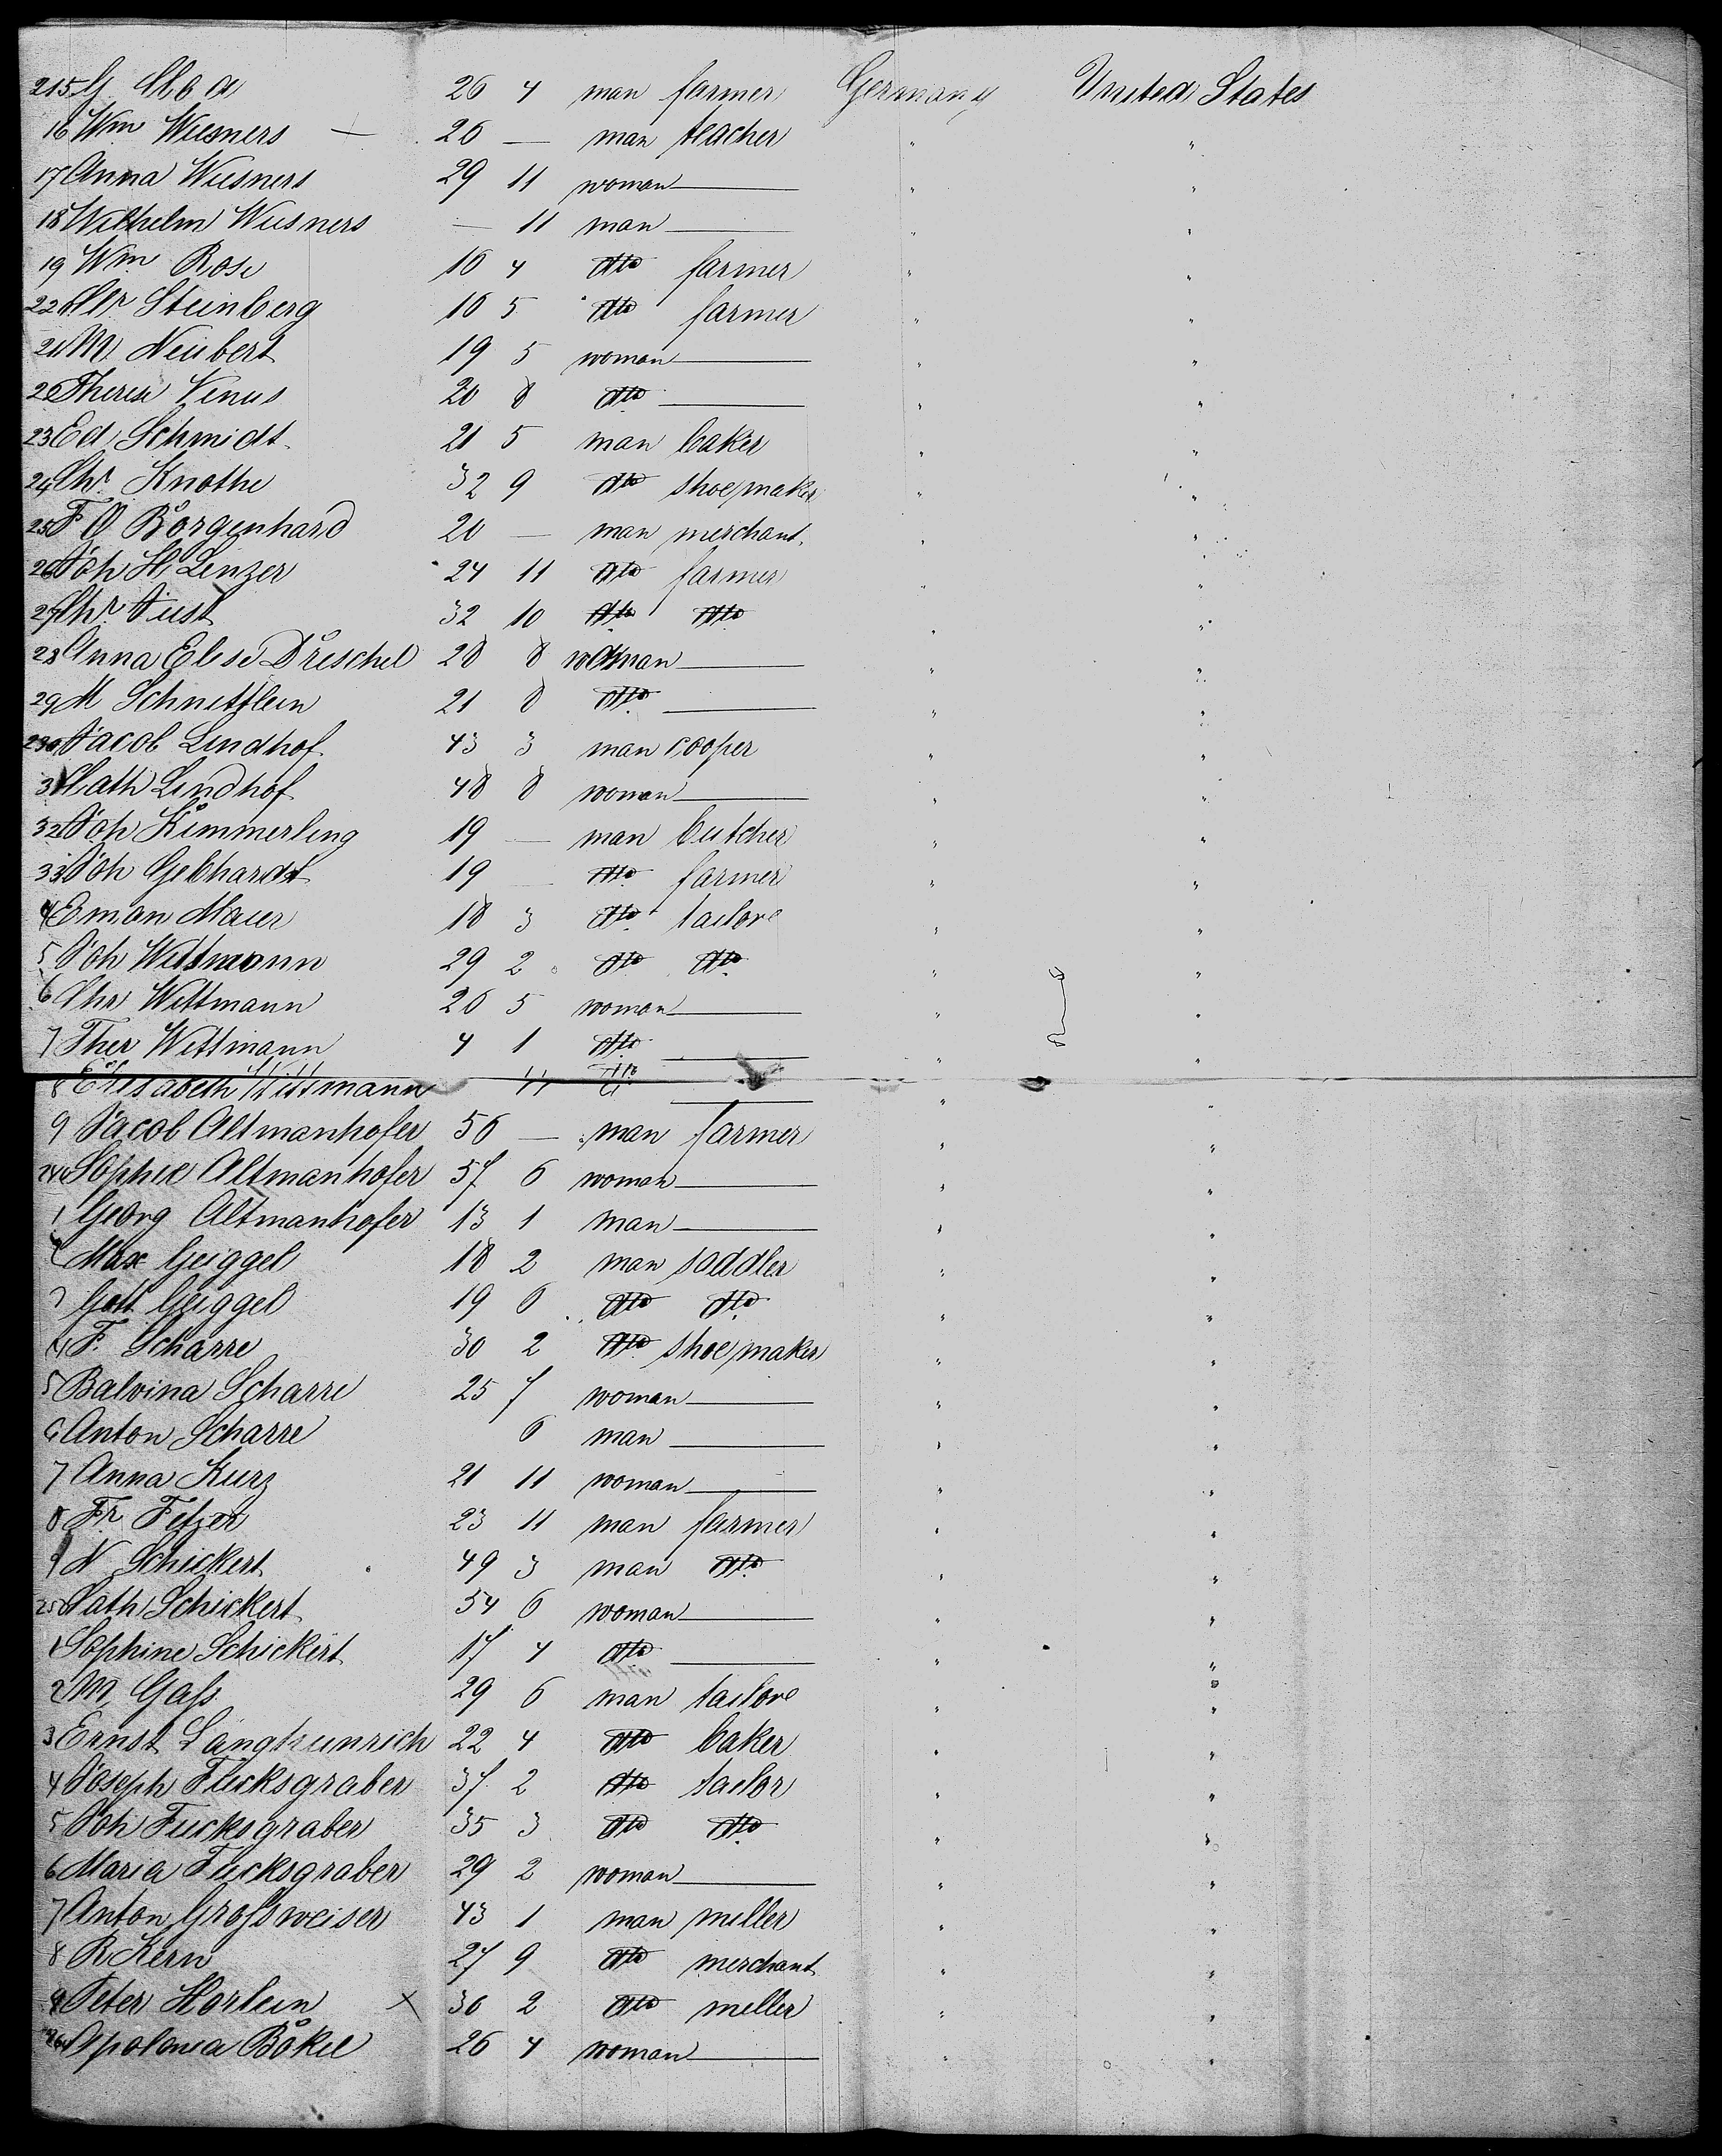 215 G. 26 4 man farmer Germany United States
16 Wm Wiesners — 26 — man teacher " "
17 Anna Wiesners 29 11 woman — " "
18 Wilhelm Wiesners — 11 man — " "
19 Wm Rose 16 4 dto farmer " "
22 Steinberg 16 5 dto farmer " "
21 M. Neubert 19 5 woman — " "
Therese Venus 20 8 dto — " "
23 Ed Schmidt 21 5 man baker " "
24 Chr. Knothe 32 9 dto shoemaker " "
25 F O Börgenhard 20 — man merchant " "
26 Joh H. Linzer 24 11 dto farmer " "
27 Chr. Just 32 10 dto dto " "
28 Anna Elise Dreschel 28 8 woman — " "
29 M Schnittlein 21 8 dto — " "
230 Jacob Lindhof 43 3 man cooper " "
31 Cath Lindhof 48 8 woman — " "
32 Joh Kimmerling 19 — man butcher " "
33 Joh Gebhardt 19 — dto farmer " "
4 Eman Maier 18 3 dto tailore " "
5 Joh Wittmann 29 2 dto dto " "
6 Chr Wittmann 26 5 woman — " "
7 Ther Wittmann 4 1 dto — " "
8 Elisabeth Wittmann 11 dto — " "
9 Jacob Altmanhofer 56 — man farmer " "
240 Sophie Altmanhofer 57 6 woman — " "
1 Georg Altmanhofer 13 1 man — " "
2 Max Geiggel 18 2 man saddler " "
3 Gott Geiggel 19 6 dto dto " "
4 F. Scharre 30 2 dto shoemaker " "
5 Balvina Scharre 25 7 woman — " "
6 Anton Scharre 6 man — " "
7 Anna Kurz 21 11 woman — " "
8 Fr. Fetzer 23 11 man farmer " "
9 N Schickert 49 3 man dto " "
250 Cath Schickert 54 6 woman — " "
1 Sophine Schickert 17 4 dto — " "
2 M. Gaß 29 6 man tailore " "
3 Ernst Langheinrich 22 4 dto baker " "
4 Joseph Fucksgraber 37 2 dto tailor " "
5 Joh Fucksgraber 35 3 dto dto " "
6 Maria Fucksgraber 29 2 woman — " "
7 Anton Großweiser 43 1 man miller " "
8 R Kern 27 9 dto merchant " "
9 Peter Horlein × 36 2 dto miller " "
260 Apolonia Bökel 26 4 woman — " "